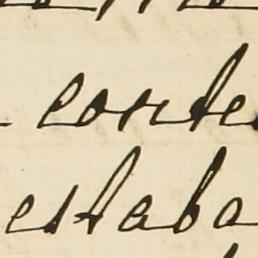 conte
estaba